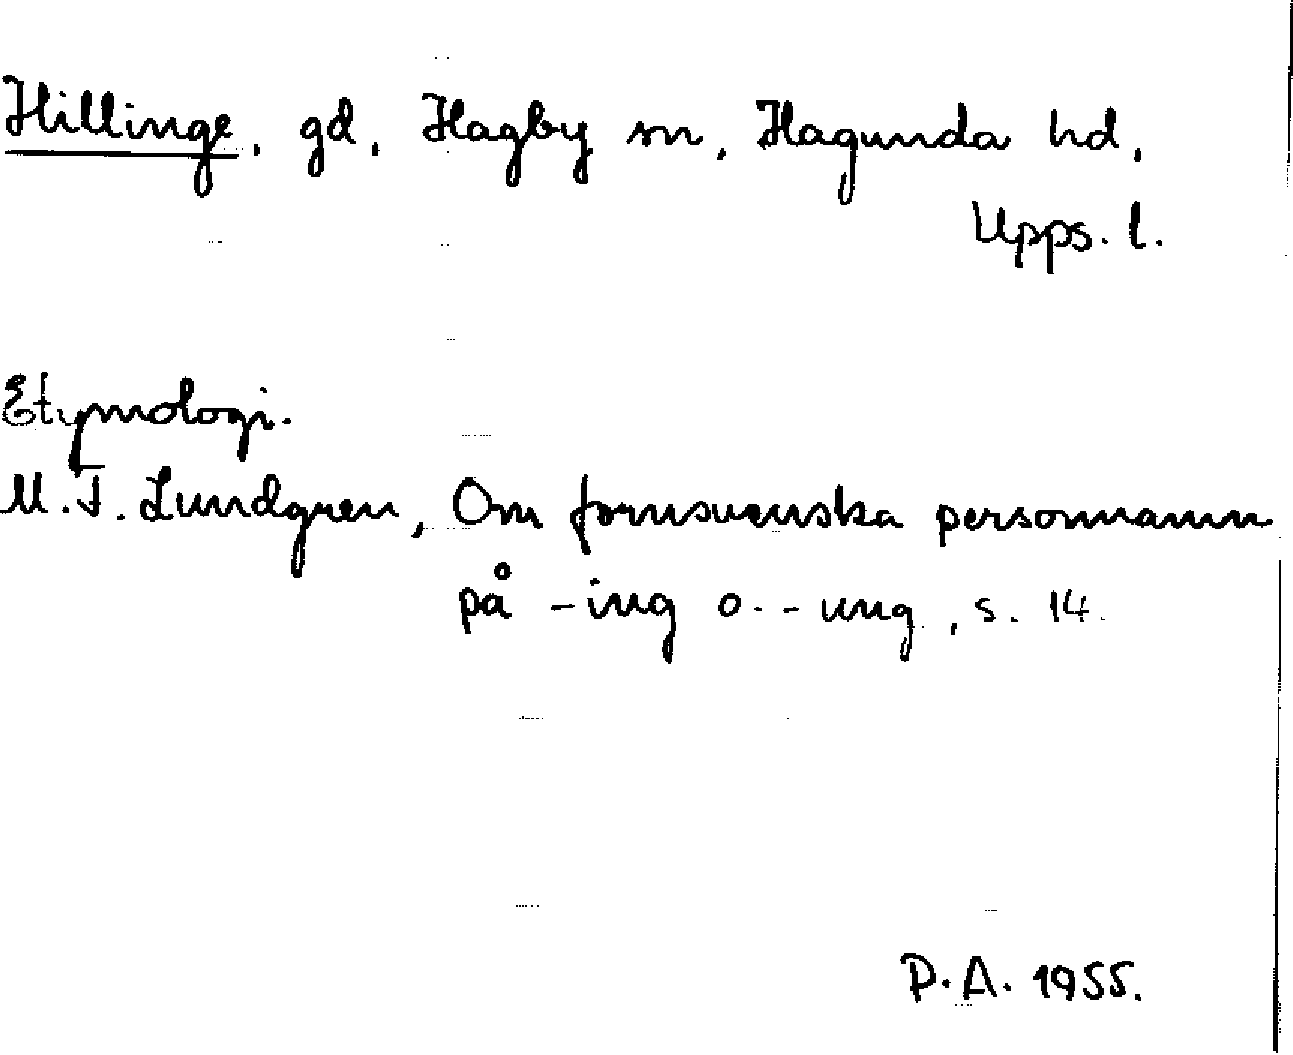 Hillinge, gd, Hagby sn, Hagunda hd,
Upps. l.
Etymologi.
M.F. Lundgren, Om fornsvenska personnamn
på -ing o. -ung, s. 14.
P.A. 1955.